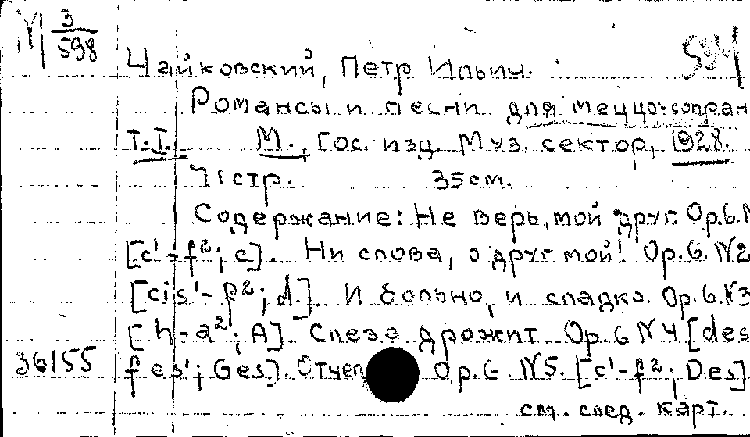 М 3/598
594
Чайковский, Петр Ильич.
Романсы и песни для меццо-сопран
Т.I. М., Гос. изд. Муз. сектор, 1928.
71 стр. 35 см.
Содержание: Не верь, мой друг. Op.6.N
[c'-f²; c]. Ни слова, о друг мой! Op.6. N2
[cis'-f²; A]. И больно, и сладко. Op.6.N3
[h-a²; A]. Слеза дрожит. Op.6 N4 [des
36155 fes'; Ges]. Отчег Op.6. N5. [c'-f²; Des]
см. след. карт.